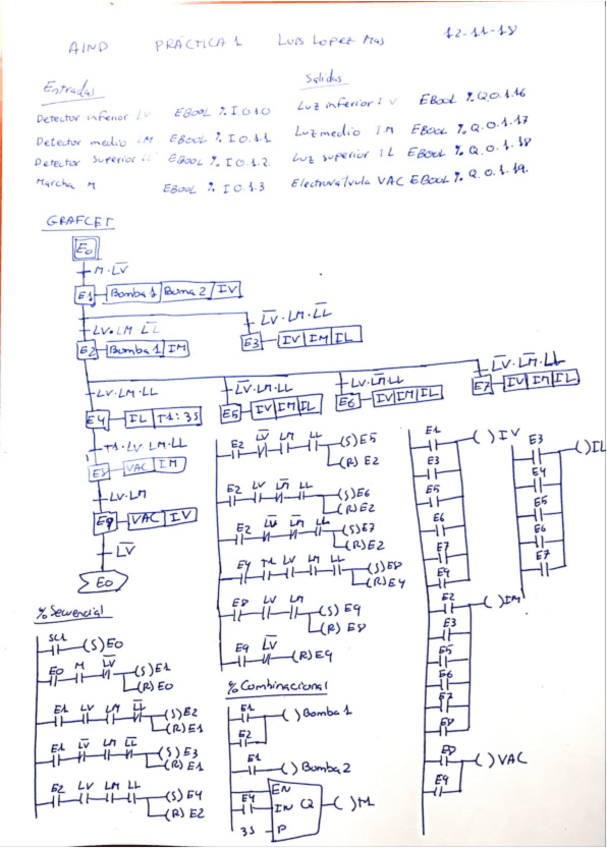 AIND PRÁCTICA 1 Luis Lopez Mas 12-11-18
Entradas
Detector inferior LV EBool %I.0.1.0
Detector medio LM EBool %I0.1.1
Detector superior LL EBool %I0.1.2
Marcha M EBool %I0.1.3
Salidas
Luz inferior IV EBool %Q.0.1.16
Luz medio IM EBool %Q.0.1.17
Luz superior IL EBool %Q.0.1.18
Electroválvula VAC EBool %Q.0.1.19.
GRAFCET
E0
M·L̅V̅
E1 Bomba 1 Boma 2 IV
LV·LM L̅L̅
L̅V̅·LM·L̅L̅
E2 Bomba 1 IM
E3 IV IM IL
LV·LM·LL
L̅V̅·LM·LL
LV·L̅M̅·LL
L̅V̅·L̅M̅·LL
E4 IL T1:3S
E5 IV IM IL
E6 IV IM IL
E7 IV IM IL
T1·LV·LM·LL
VAC IM
LV·LM
E9 VAC IV
L̅V̅
E0
% Secuencial
SC1 (S)E0
E0 M L̅V̅ (S)E1
(R)E0
E1 LV LM L̅L̅ (S)E2
(R)E1
E1 L̅V̅ LM L̅L̅ (S)E3
(R)E1
E2 LV LM LL (S)E4
(R)E2
E2 L̅V̅ LM LL (S)E5
(R)E2
E2 LV L̅M̅ LL (S)E6
(R)E2
E2 L̅V̅ L̅M̅ LL (S)E7
(R)E2
E4 T1 LV LM LL (S)E8
(R)E4
E8 LV LM (S)E9
(R)E8
E9 L̅V̅ (R)E9
% Combinacional
E1 ( ) Bomba 1
E2
E1 ( ) Bomba 2
E4 EN
IN Q ( )
3S P
E1 ( ) IV
E3
E5
E6
E7
E9
E2 ( ) IM
E3
E5
E6
E7
E8
E8 ( ) VAC
E9
E3 ( ) IL
E4
E5
E6
E7